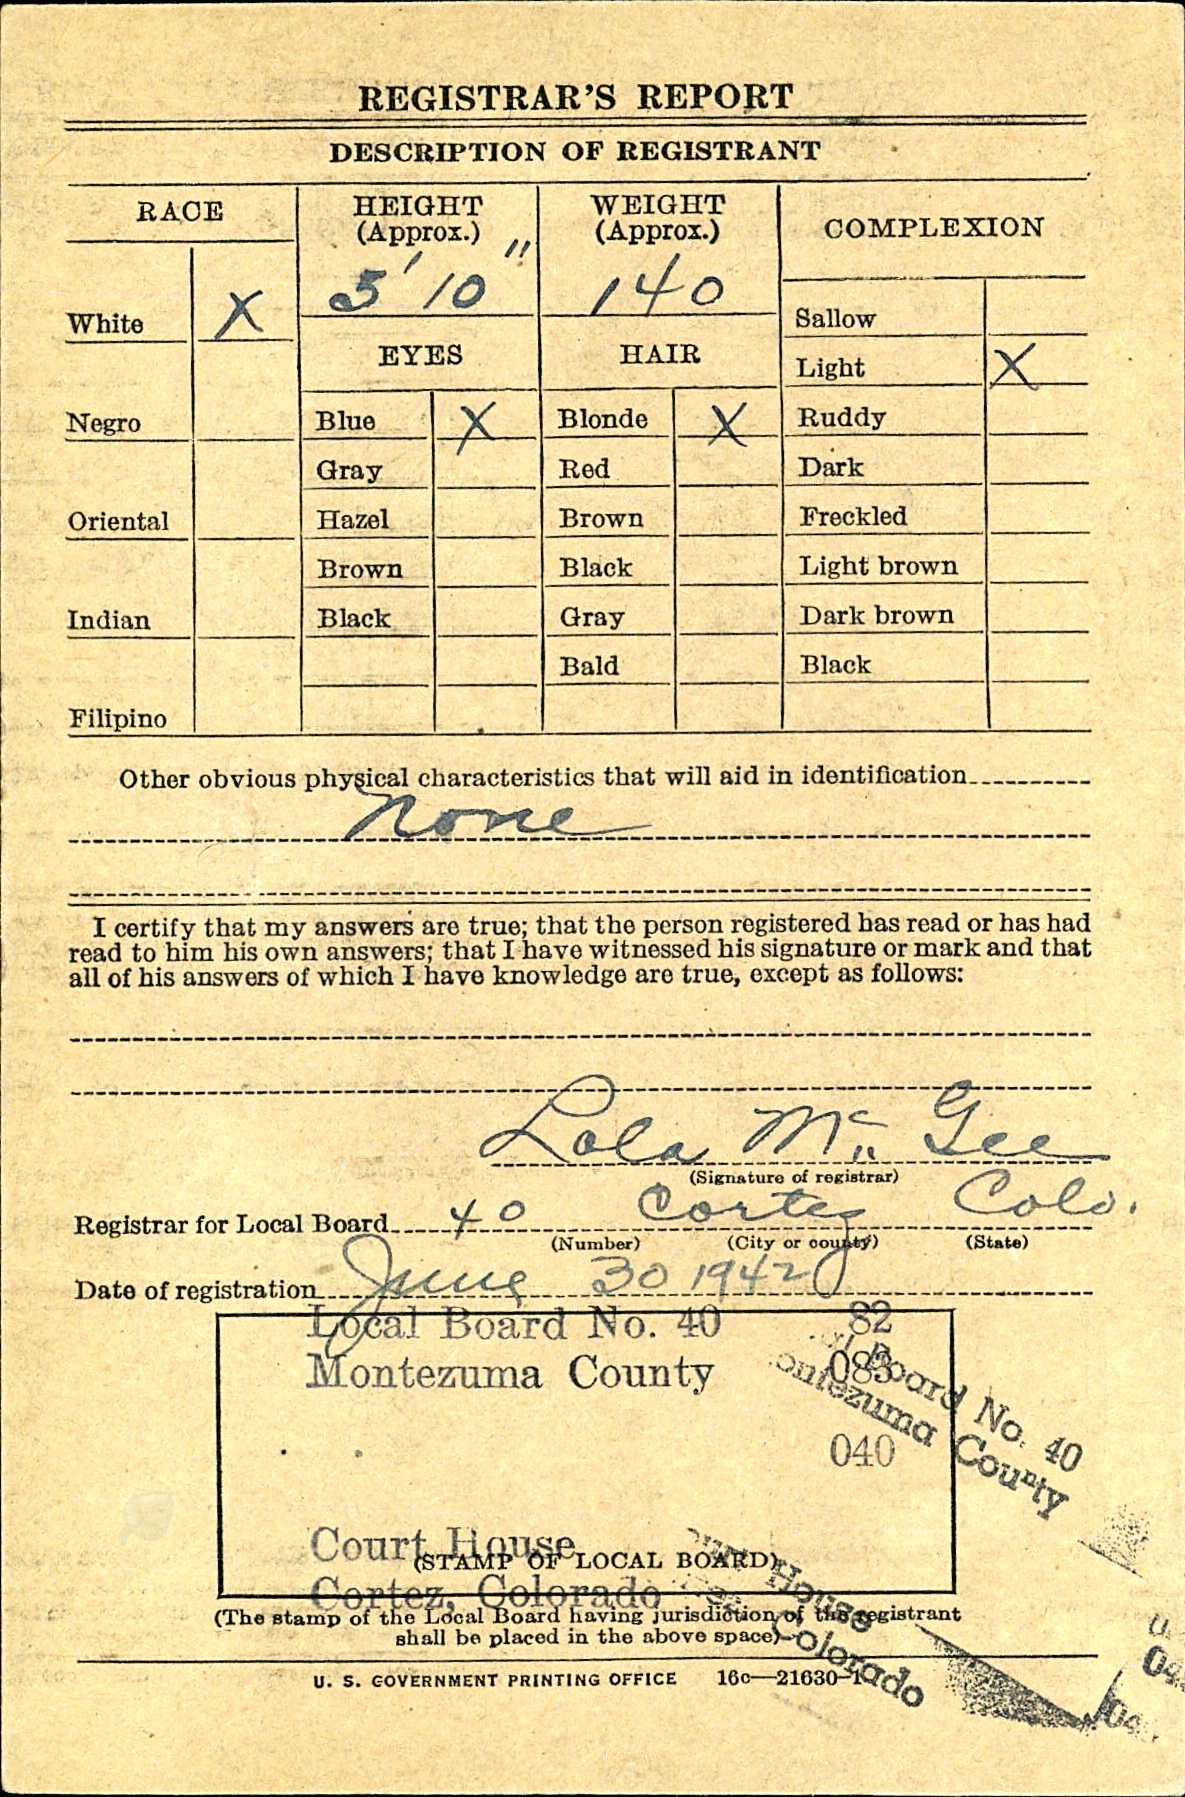 REGISTRAR'S REPORT
DESCRIPTION OF REGISTRANT
RACE
HEIGHT
(Approx.)
5' 10"
WEIGHT
(Approx.)
140
COMPLEXION
White X
Negro
Oriental
Indian
Filipino
EYES
Blue X
Gray
Hazel
Brown
Black
HAIR
Blonde X
Red
Brown
Black
Gray
Bald
Sallow
Light X
Ruddy
Dark
Freckled
Light brown
Dark brown
Black
Other obvious physical characteristics that will aid in identification
None
I certify that my answers are true; that the person registered has read or has had
read to him his own answers; that I have witnessed his signature or mark and that
all of his answers of which I have knowledge are true, except as follows:
Lola Mc Gee
(Signature of registrar)
Registrar for Local Board 40 Cortez Colo.
(Number) (City or county) (State)
Date of registration June 30 1942
Local Board No. 40 82
Montezuma County 083
040
Court House
Cortez, Colorado
(STAMP OF LOCAL BOARD)
Board No. 40
Montezuma County
House
Colorado
(The stamp of the Local Board having jurisdiction of the registrant
shall be placed in the above space)
U. S. GOVERNMENT PRINTING OFFICE 16c—21630-1